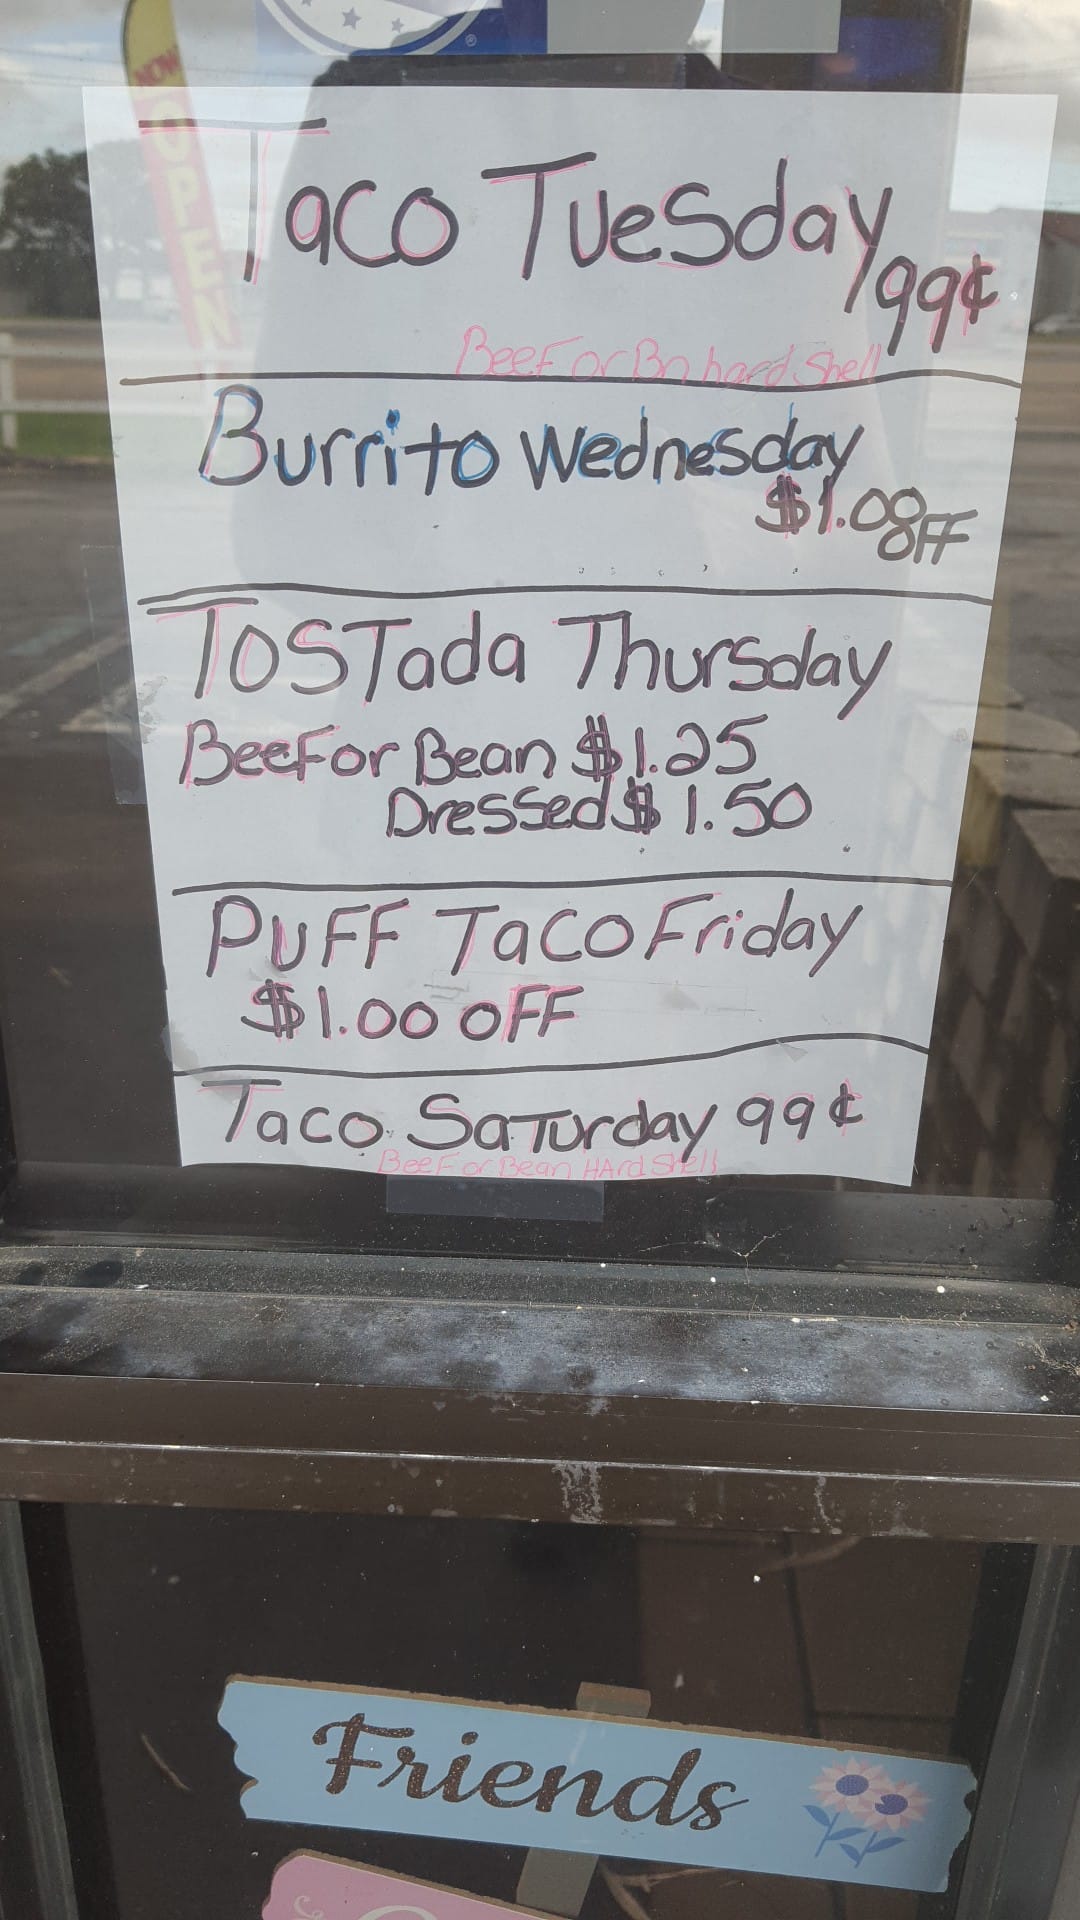 NOW
OPEN
®
Taco Tuesday
99¢
Beef Or Bn hard Shell
Burrito Wednesday
$1.00 OFF
Tostada Thursday
Beef or Bean $1.25
Dressed $1.50
PUFF Taco Friday
$1.00 OFF
Taco Saturday 99¢
Beef or Bean HArd Shell
Friends